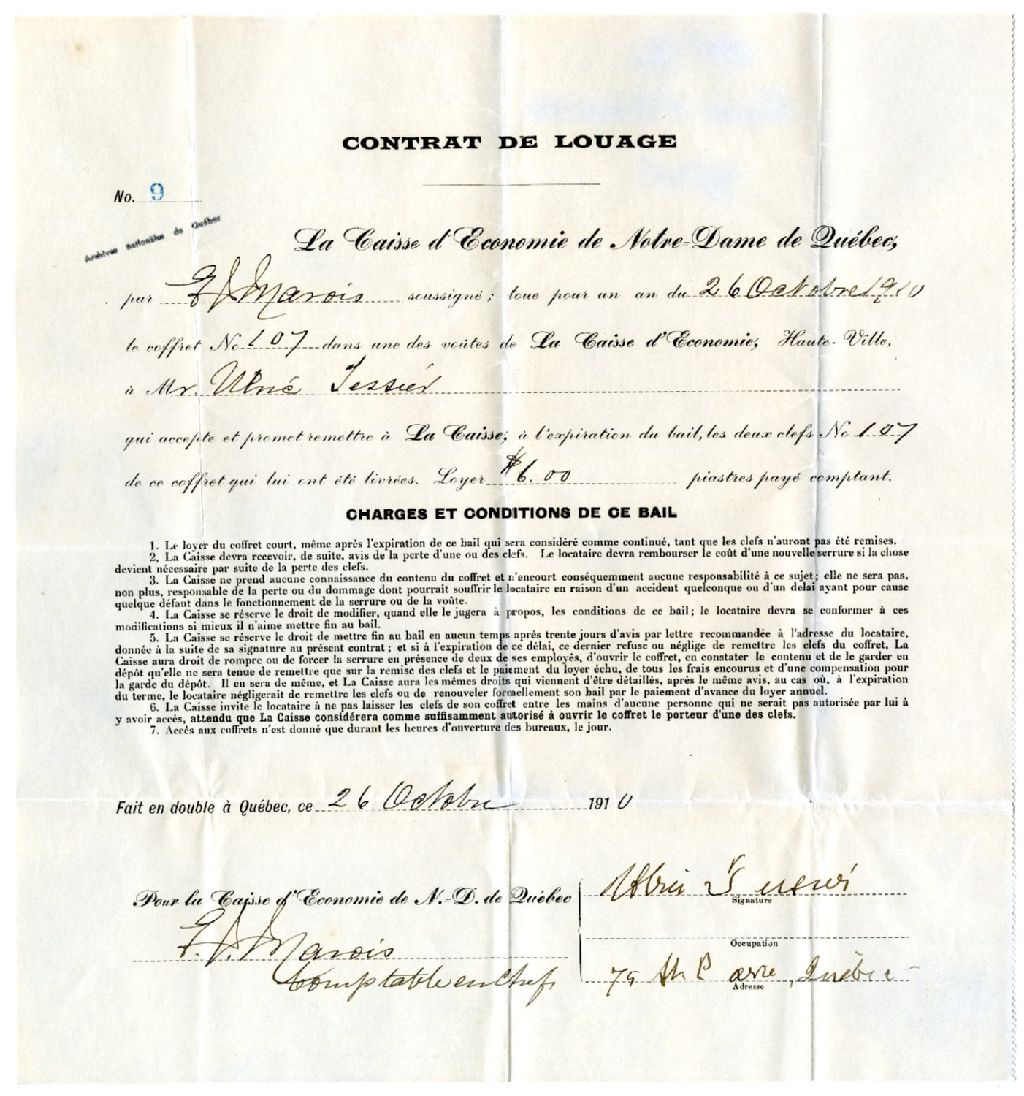 CONTRAT DE LOUAGE
No. 9
Archives nationales de Québec
La Caisse d'Economie de Notre-Dame de Québec,
par E. J. Marois soussigné; loue pour un an du 26 Octobre 1910
le coffret No 107 dans une des voûtes de La Caisse d'Economie, Haute-Ville,
à Mr. Ulric Tessier
qui accepte et promet remettre à La Caisse, à l'expiration du bail, les deux clefs No 107
de ce coffret qui lui ont été livrées. Loyer $6.00 piastres payé comptant.
CHARGES ET CONDITIONS DE CE BAIL
1. Le loyer du coffret court, même après l'expiration de ce bail qui sera considéré comme continué, tant que les clefs n'auront pas été remises.
2. La Caisse devra recevoir, de suite, avis de la perte d'une ou des clefs. Le locataire devra rembourser le coût d'une nouvelle serrure si la chose
devient nécessaire par suite de la perte des clefs.
3. La Caisse ne prend aucune connaissance du contenu du coffret et n'encourt conséquemment aucune responsabilité à ce sujet; elle ne sera pas,
non plus, responsable de la perte ou du dommage dont pourrait souffrir le locataire en raison d'un accident quelconque ou d'un délai ayant pour cause
quelque défaut dans le fonctionnement de la serrure ou de la voûte.
4. La Caisse se réserve le droit de modifier, quand elle le jugera à propos, les conditions de ce bail; le locataire devra se conformer à ces
modifications si mieux il n'aime mettre fin au bail.
5. La Caisse se réserve le droit de mettre fin au bail en aucun temps après trente jours d'avis par lettre recommandée à l'adresse du locataire,
donnée à la suite de sa signature au présent contrat; et si à l'expiration de ce délai, ce dernier refuse ou néglige de remettre les clefs du coffret, La
Caisse aura droit de rompre ou de forcer la serrure en présence de deux de ses employés, d'ouvrir le coffret, en constater le contenu et de le garder en
dépôt qu'elle ne sera tenue de remettre que sur la remise des clefs et le paiement du loyer échu, de tous les frais encourus et d'une compensation pour
la garde du dépôt. Il en sera de même, et La Caisse aura les mêmes droits qui viennent d'être détaillés, après le même avis, au cas où, à l'expiration
du terme, le locataire négligerait de remettre les clefs ou de renouveler formellement son bail par le paiement d'avance du loyer annuel.
6. La Caisse invite le locataire à ne pas laisser les clefs de son coffret entre les mains d'aucune personne qui ne serait pas autorisée par lui à
y avoir accès, attendu que La Caisse considérera comme suffisamment autorisé à ouvrir le coffret le porteur d'une des clefs.
7. Accès aux coffrets n'est donné que durant les heures d'ouverture des bureaux, le jour.
Fait en double à Québec, ce 26 Octobre 1910
Pour la Caisse d'Economie de N.-D. de Québec
E. J. Marois
Comptable en Chef
Signature
Occupation
79 Québec
Adresse